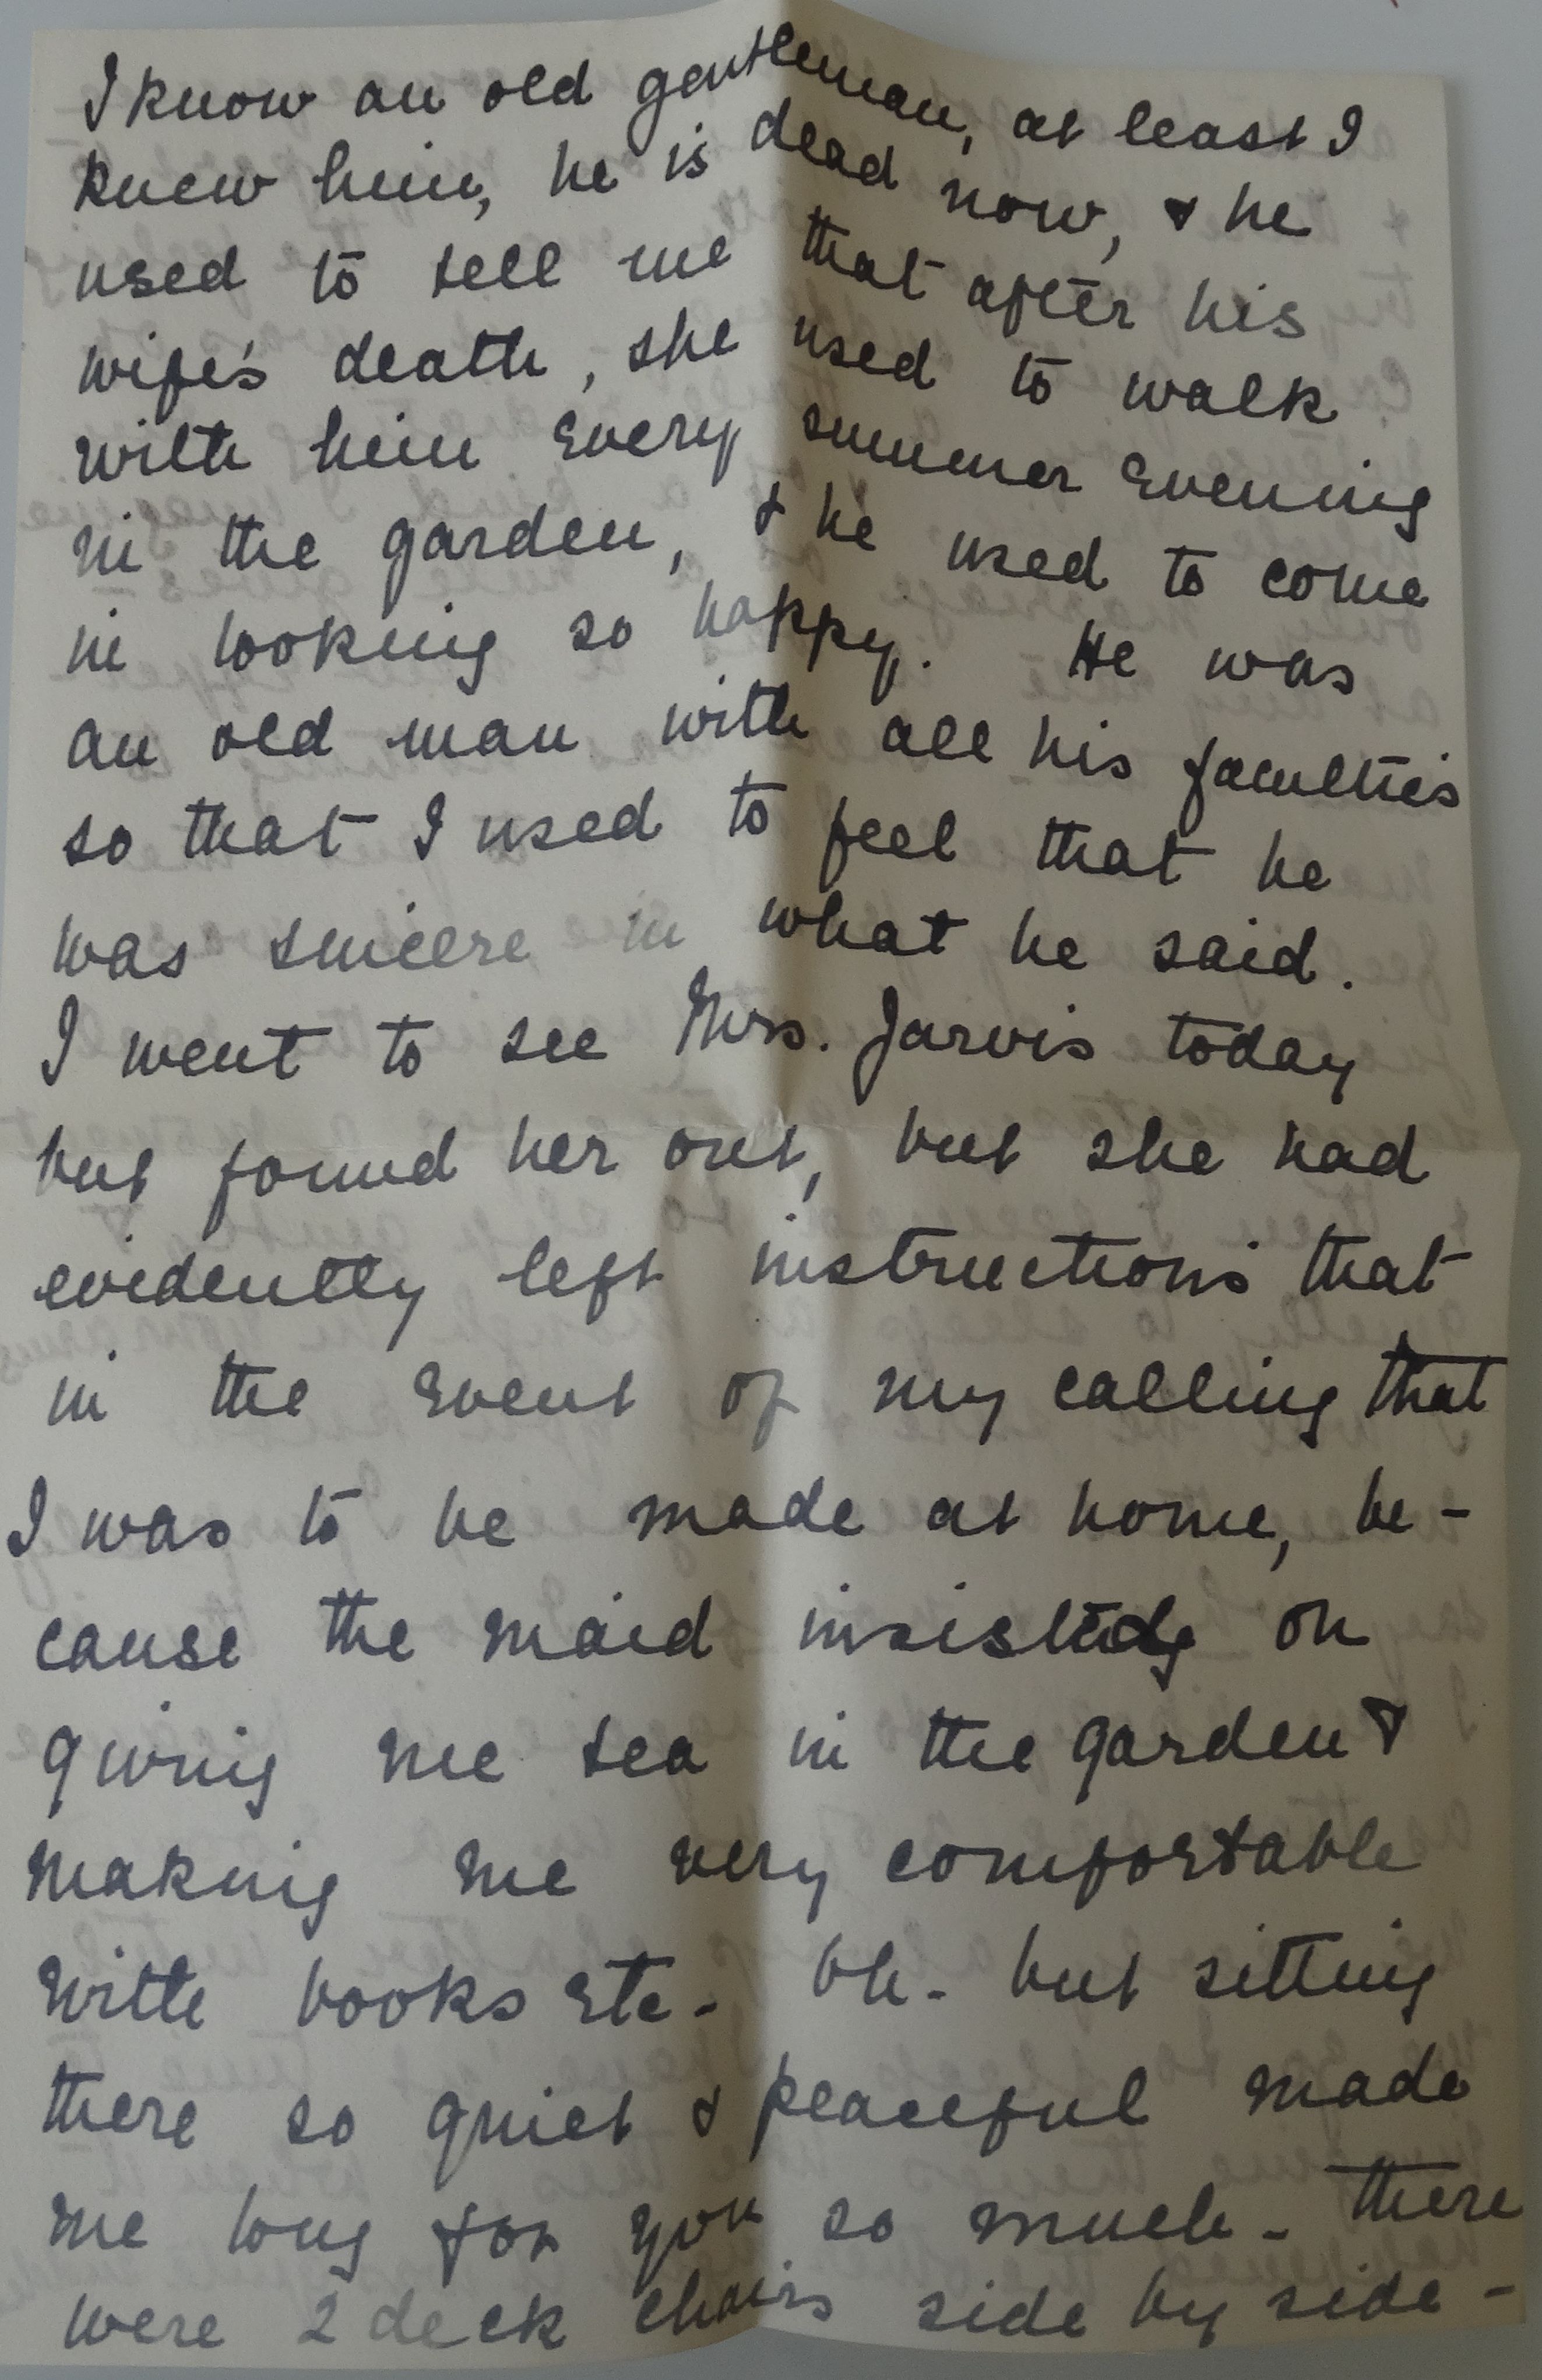 I know an old gentleman, at least I
knew him, he is dead now, & he
used to tell me that after his
wife's death, she used to walk
with him every summer evening
in the garden, & he used to come
in looking so happy. He was
an old man with all his faculties
so that I used to feel that he
was sincere in what he said.
I went to see Mrs. Jarvis today
but found her out, but she had
evidently left instructions that
in the event of my calling that
I was to be made at home, be-
cause the maid insisted on
giving me tea in the garden &
making me very comfortable
with books etc - Oh - but sitting
there so quiet & peaceful made
me long for you so much - there
were 2 deck chairs side by side -